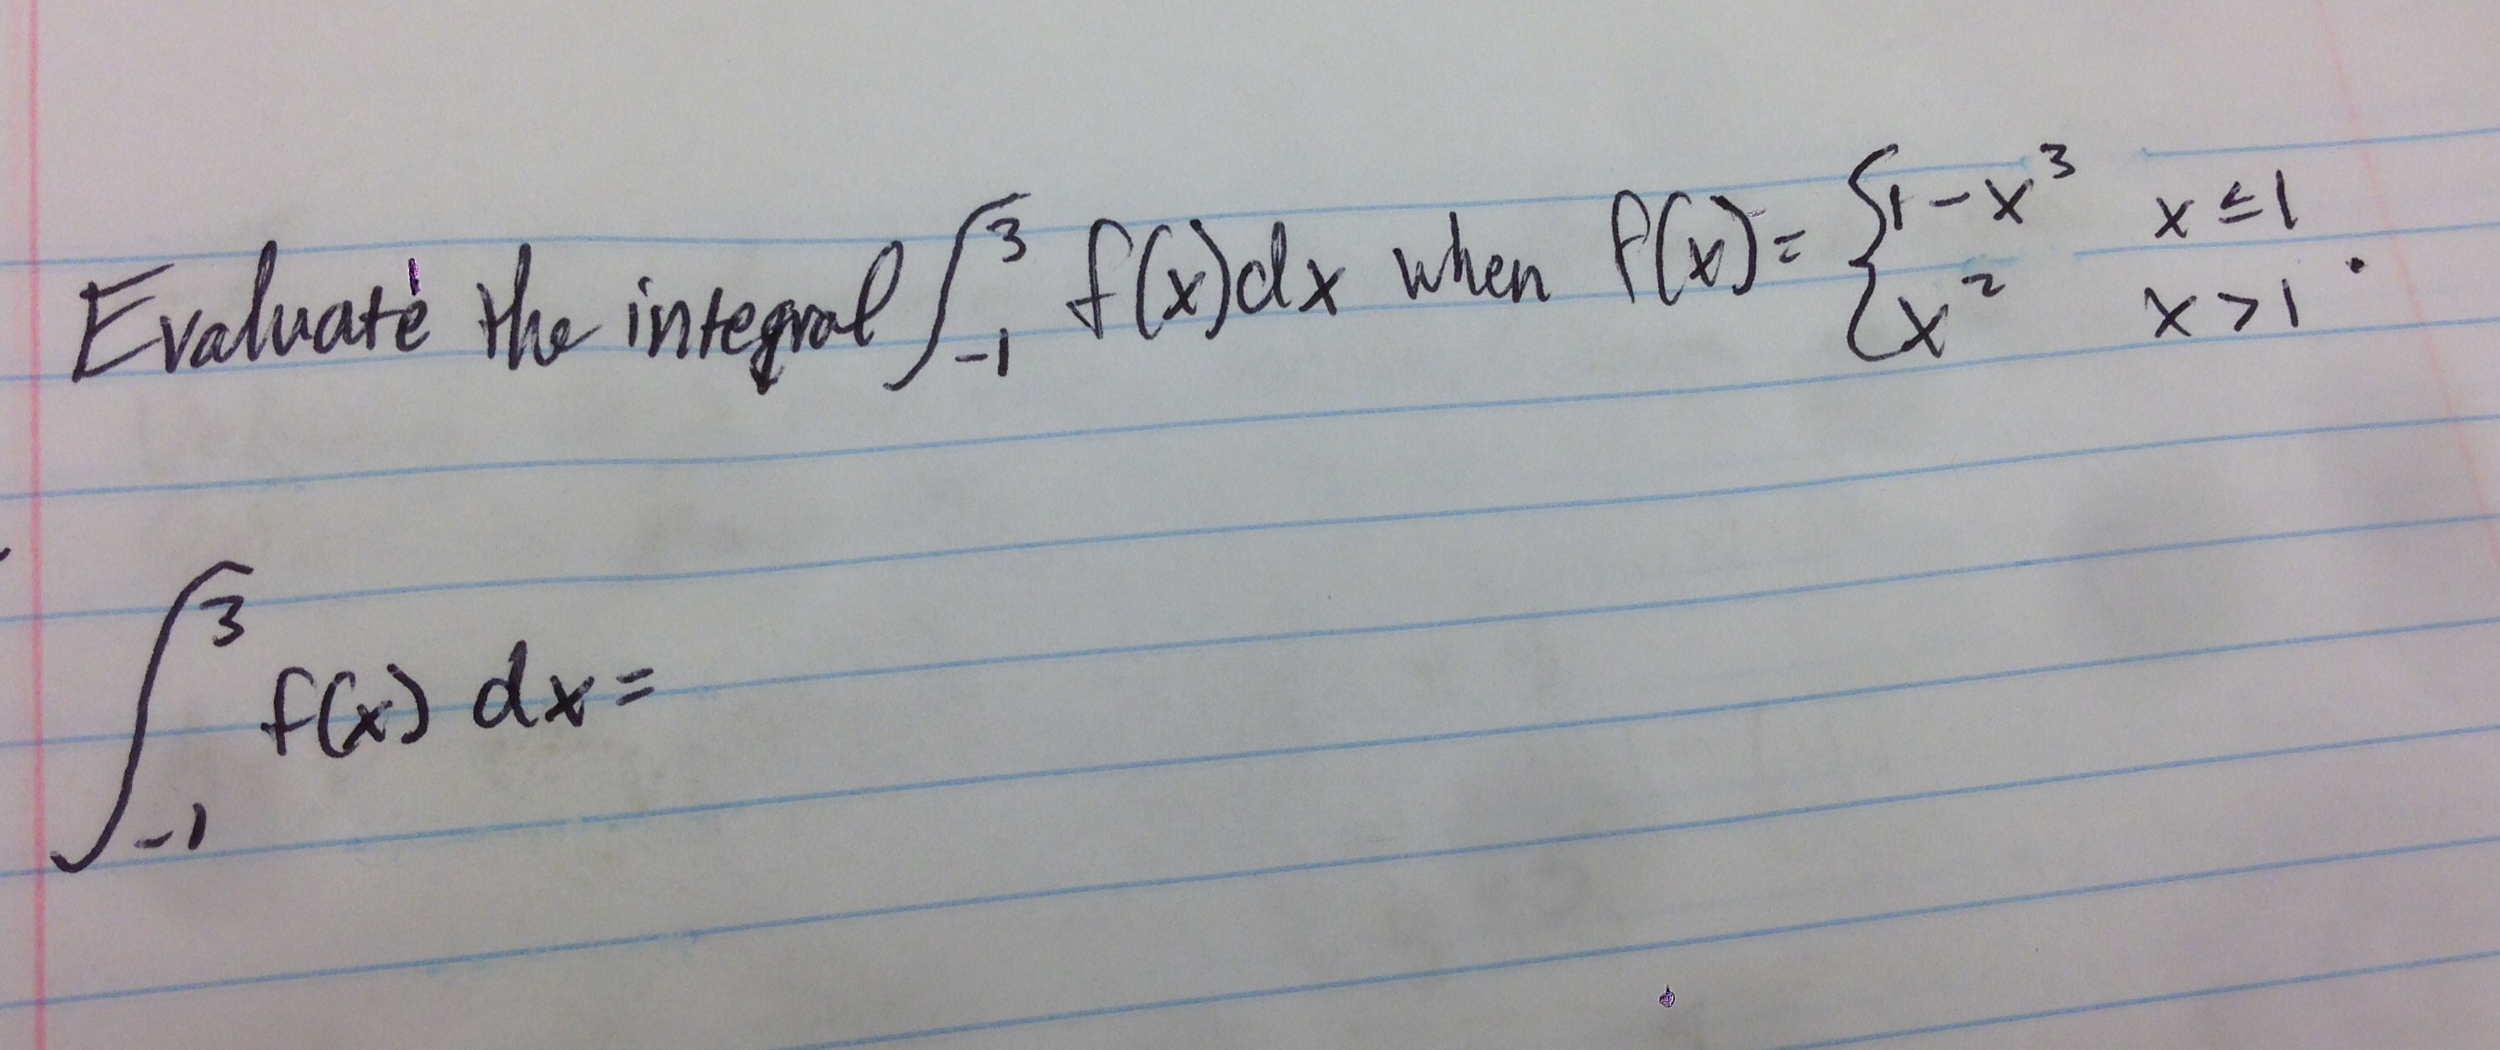 Evaluate the integral ∫₋₁³ f(x)dx when f(x) = { 1-x³ x≤1
x² x>1 .
∫₋₁³ f(x) dx =